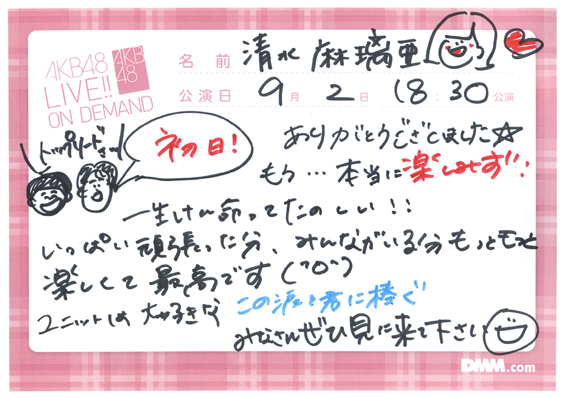 AKB48
LIVE!!
ON DEMAND
AKB
48
名前 清水 麻璃亜
公演日 9月 2日 18:30公演
トップリードさん
初日!
ありがとうございました☆
もう…本当に楽しみすぎ!!
一生けん命ってたのしい!!
いっぱい頑張った分、みんながいる分もっともっと
楽しくて最高です(^o^)
ユニットは大好きな この涙を君に捧ぐ
みなさんぜひ見に来て下さい
DMM.com